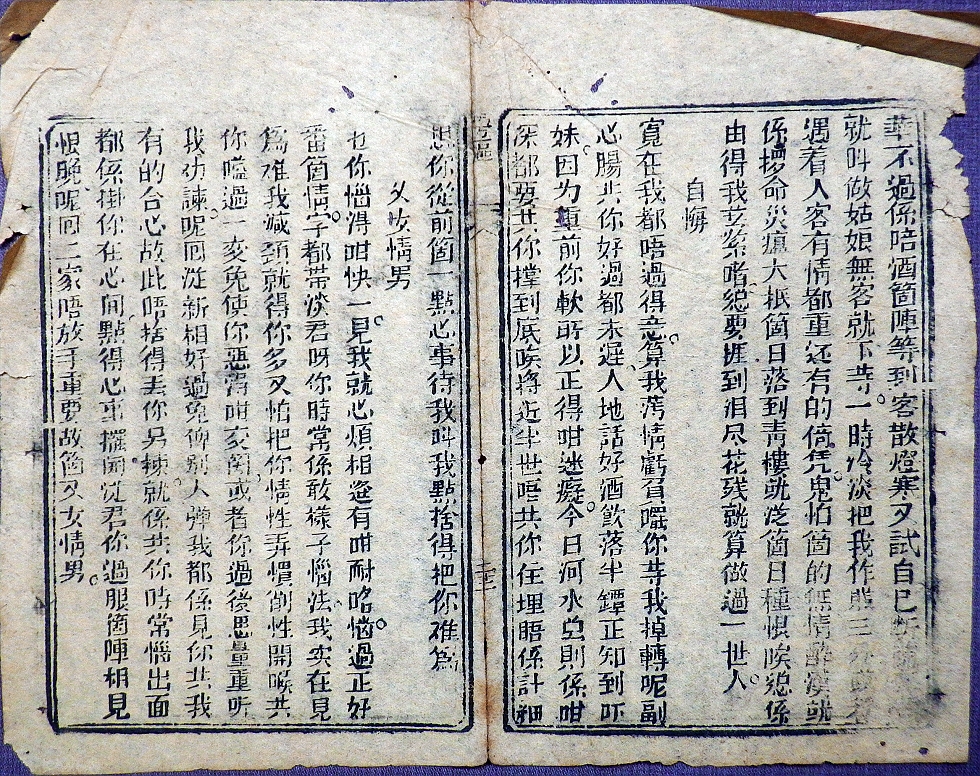 華不過係陪酒箇陣等到客散燈寒又試自己
就叫做姑娘無客就下寺一時冷淡把我作賤三
遇着人客有情都重还有的倚凭鬼怕箇的無情醉漢就
係攞命災瘟大抵箇日落到青樓就泛箇日種恨唉縂係
由得我玄索啫縂要捱到泪尽花残就算做過一世人
自悔
寬在我都唔過得意算我薄情虧負囉你等我掉轉呢副
心腸共你好過都未遲人地話好酒飲落半罈正知到吓
妹因为重前你軟所以正得咁迷癡今日河水並則係咁
深都要共你撑到底唉將近半世唔共你住埋唔係計細
思你從前箇一點心事待我叫我點捨得把你难為
嬲情男
乜你惱得咁快一見我就心煩相逢有咁耐咯惱過正好
番箇情字都带淡君呀你時常係敢樣子惱法我实在見
爲难我减頸就得你多又怕把你情性弄慣削性開喉共
你嗌過一変免使你惡當咁交関或者你過後思量重听
我劝諫呢囘泛新相好過免俾别人彈我都係見你共我
有的合心故此唔捨得丢你另揀就係共你時常惱出面
都係掛你在心间點得心事擺開泛君你過眼箇陣相見
恨晚呢囘二家唔放手重要做箇男女情男